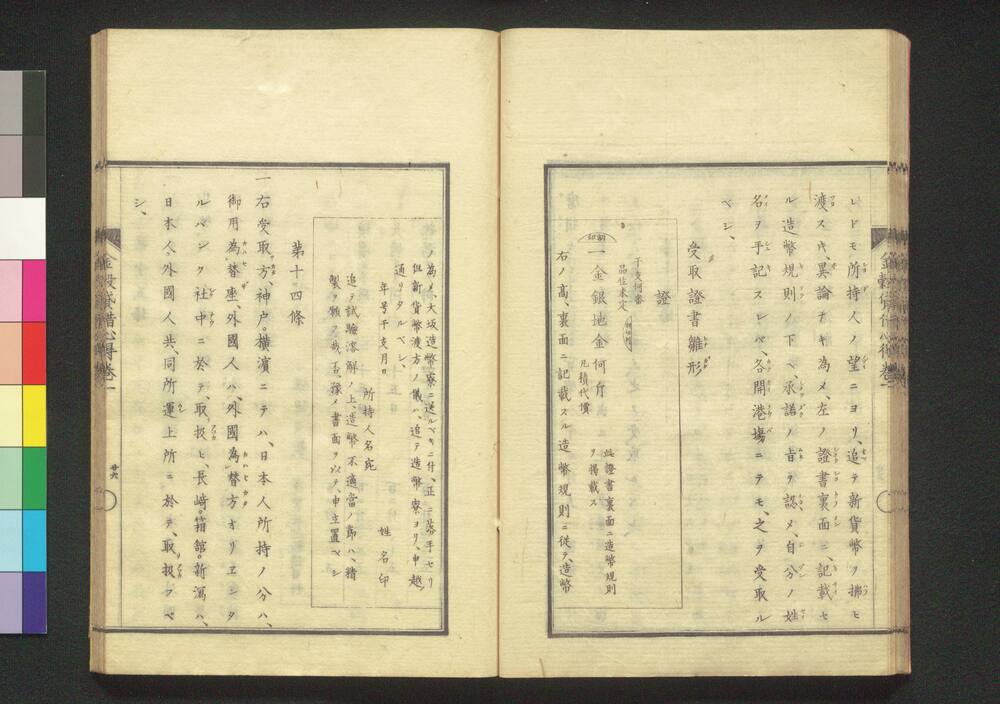 レドモ所持人ノ望ニヨリ、追テ新貨幣ヲ拂ヒ
渡ス𪜈、異論ナキ為メ、左ノ證書裏面ニ、記載セ
ル造幣規則ノ下ヘ、承諾ノ旨ヲ認メ、自分ノ姓
名ヲ手記スレバ、各開港塲ニテモ、之ヲ受取ル
ベシ、
受取證書雛形
證
干支何番
品位未定
割印
一金銀地金何斤
凡積代價
此證書裏面ニ造幣規則
ヲ掲載ス
右ノ高、裏面ニ記載スル造幣規則ニ従テ、造幣
ノ為メ、大坂造幣寮ニ送ルベキニ付、正ニ落手セリ
但新貨幣渡方ノ儀ハ、追テ造幣寮ヨリ、申越
通リタルベシ、
年号干支月日
姓名印
所持人名宛
追テ試驗溶解ノ上、造幣不適當ノ節ハ、精
製ヲ願フ哉、否、豫メ書面ヲ以テ、申立置ベシ
第十四條
一右受取方、神戸。横濱ニテハ、日本人所持ノ分ハ、
御用為替座、外國人ハ、外國為替方オリヱンタ
ルバンク社中ニ於テ、取扱ヒ、長﨑。箱館。新潟ハ、
日本人。外國人共、同所運上所ニ於テ、取扱フベ
シ、
廿六